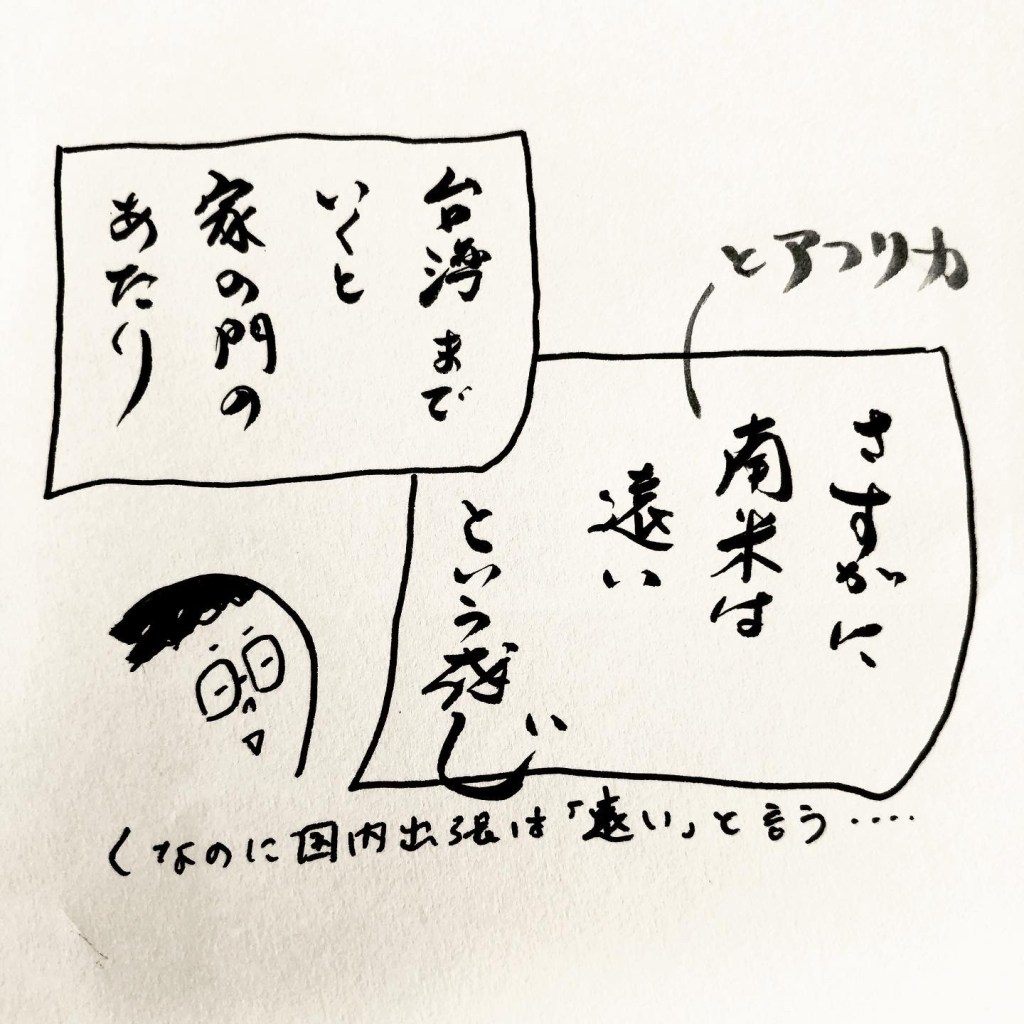 台湾まで
いくと
家の門の
あたり
とアフリカ
さすがに
南米は
遠い
という感じ
い
くなのに国内出張は「遠い」と言う‥‥